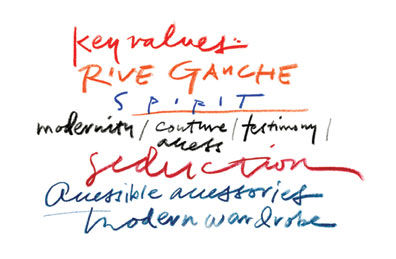 key values:
RIVE GAUCHE
SPIRIT
modernity / couture / testimony /
access
seduction
Acessible acessories
modern wardrobe